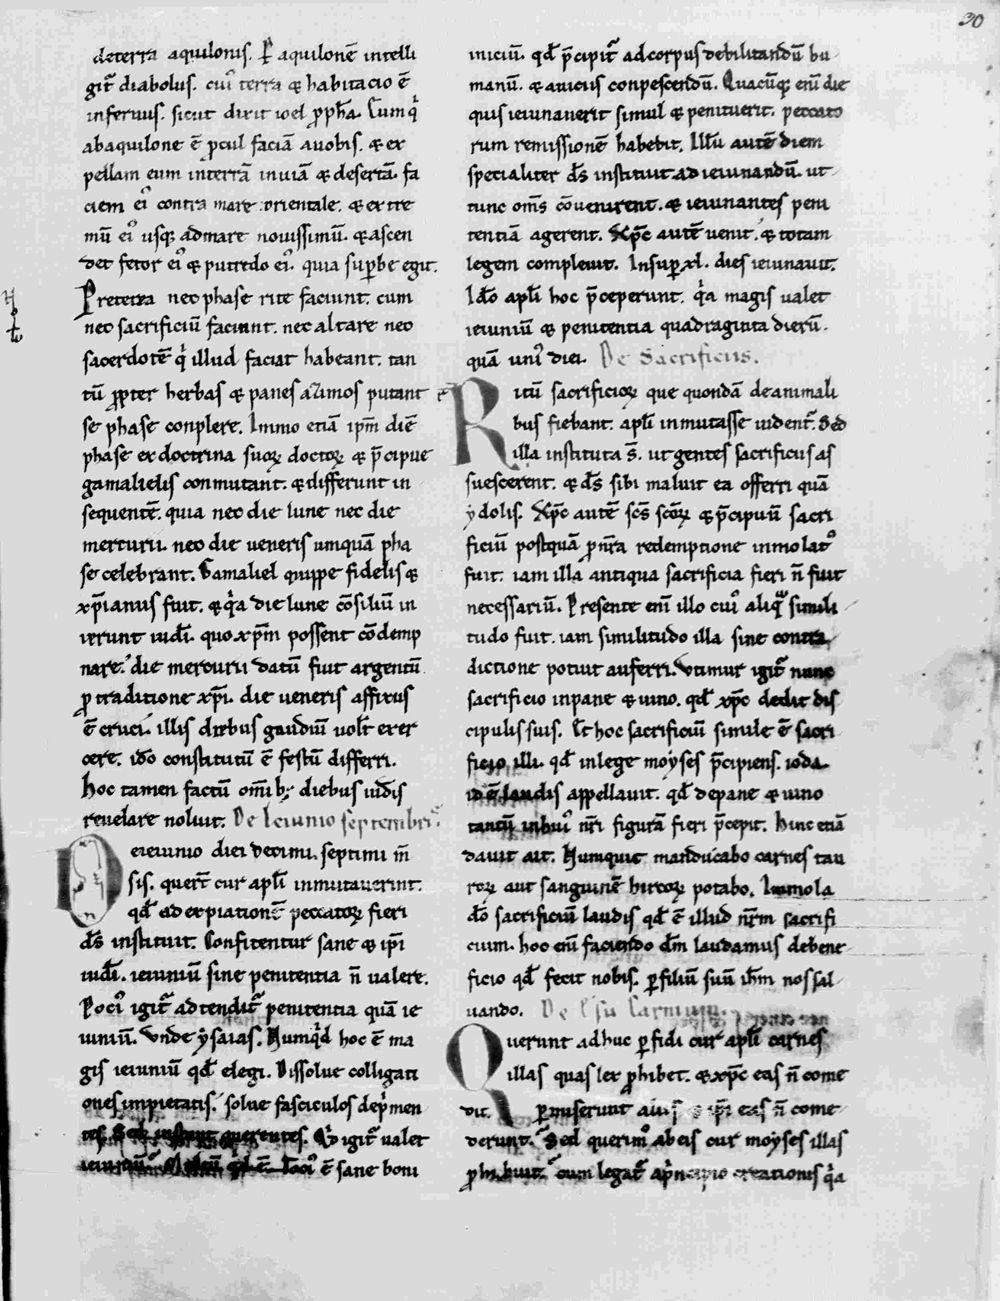 30
de terra aquilonis. P̄ aquilonē intelli
git᷑ diabolus. cui᷒ terra ⁊ habitacio ē
infernus. sicut dixit ioel ꝓph̄a. Eum q͛
ab aquilone ē ꝓcul faciā a uobis. ⁊ ex
pellam eum in terrā inuiā ⁊ desertā. fa
ciem ei᷒ contra mare orientale. ⁊ extre
mū ei᷒ usq; ad mare nouissimū. ⁊ ascen
det fetor ei᷒ ⁊ putredo ei᷒. quia suꝑbe egit.
Preterea nec phase rite faciunt. cum
nec sacrificiū faciunt. nec altare nec
sacerdotē q͛ illud faciat habeant. tan
tū ꝓpter herbas ⁊ panes azimos putant
se phase conplere. Immo etiā ip̄m diē
phase ex doctrina suoꝝ doctoꝝ ⁊ p̄cipue
gamalielis conmutant. ⁊ differunt in
sequentē. quia nec die lune nec die
mercurii. nec die ueneris umquā pha
se celebrant. Gamaliel quippe fidelis ⁊
xp̄ianus fuit. ⁊ q͛a die lune cōsiliū in
ierunt iudi᷒. quo xp̄m possent cōdemp
nare. die mercurii datū fuit argentū
ꝓ traditione xp̄i. die ueneris affixus
ē cruci. illis diebus gaudiū uoluit exer
cere. ido᷒ constitutū ē festū differri.
Hoc tamen factū om̄ib; diebus iud̄is
reuelare noluit. De Ieiunio septembri᷒.
De ieiunio diei decimi septimi m̄
sis. querit᷑ cur apl̄i inmutauerint.
qd̄ ad expiationē peccatoꝝ fieri
d̄s instituit. Confitentur sane ⁊ ip̄i
iudi᷒. ieiuniū sine penitentia n̄ ualere.
Poci᷒ igit᷑ adtendit᷑ penitentia quā ie
iuniū. Vnde ẏsaias. Numq͛d hoc ē ma
gis ieiuniū qd̄ elegi. Dissolue colligati
ones impietatis. solue fasciculos dep̄men
tes. Sed instant querentes. Q͛d igit᷑ ualet
ieiuniū ē sane boni
iniciū. qd̄ p̄cipit᷑ ad corpus debilitandū hu
manū. ⁊ a uiciis conpescendū. Quacūq; eni᷒ die
quis ieiunauerit simul ⁊ penituerit. peccato
rum remissionē habebit. Illū autē diem
specialiter d̄s instituit ad ieiunandū. ut
tunc om̄s cōuenirent. ⁊ ieiunantes peni
tentiā agerent. Xp̄c autē uenit. ⁊ totam
legem compleuit. Insuꝑ xl. dies ieiunauit.
Ido᷒ apl̄i hoc p̄ceperunt. q͛a magis ualet
ieiuniū ⁊ penitentia quadraginta dierū.
quā uni᷒ diei. De Sacrificiis.
Ritū sacrificioꝝ que quondā de animali
bus fiebant. apl̄i inmutasse uident᷑. Sed
illa instituta s̄. ut gentes sacrificiis as
suescerent. ⁊ d̄s sibi maluit ea offerri quā
ẏdolis. Xp̄c autē sc̄s sc̄oꝝ ⁊ p̄cipuū sacri
ficiū postquā ꝓ nr̄a redemptione inmolat᷒
fuit. iam illa antiqua sacrificia fieri n̄ fuit
necessariū. Presente eni᷒ illo cui᷒ aliqͣ simili
tudo fuit. iam similitudo illa sine contra
dictione potuit auferri. Vtimur igit᷑ nunc
sacrificio in pane ⁊ uino. qd̄ xp̄c dedit dis
cipulis suis. Et hoc sacrificiū simile ē sacri
ficio illi. qd̄ in lege moẏses p̄cipiens. ioda
id ē laudis appellauit. qd̄ de pane ⁊ uino
tantū in hui᷒ nr̄i figurā fieri p̄cepit. Hinc etiā
dauit ait. Numquit manducabo carnes tau
roꝝ aut sanguinē hircoꝝ potabo. Immola
do᷒ sacrificiū laudis qd̄ ē illud nr̄m sacrifi
cium. hoc eni᷒ faciendo dm̄ laudamus de bene
ficio qd̄ fecit nobis. ꝑ filiū suū ih̄m nos sal
uando. De Esu Carnium.
Querunt adhuc ꝑfidi cur apl̄i carnes
illas quas lex ꝓhibet. ⁊ xp̄c eas n̄ come
dit. ꝑmiserunt aliis ip̄i eas n̄ come
derunt. Sed querim᷒ ab eis cur moẏses illas
ꝓhibuit. cum legat᷑ a p̄ncipio creationis q͛a